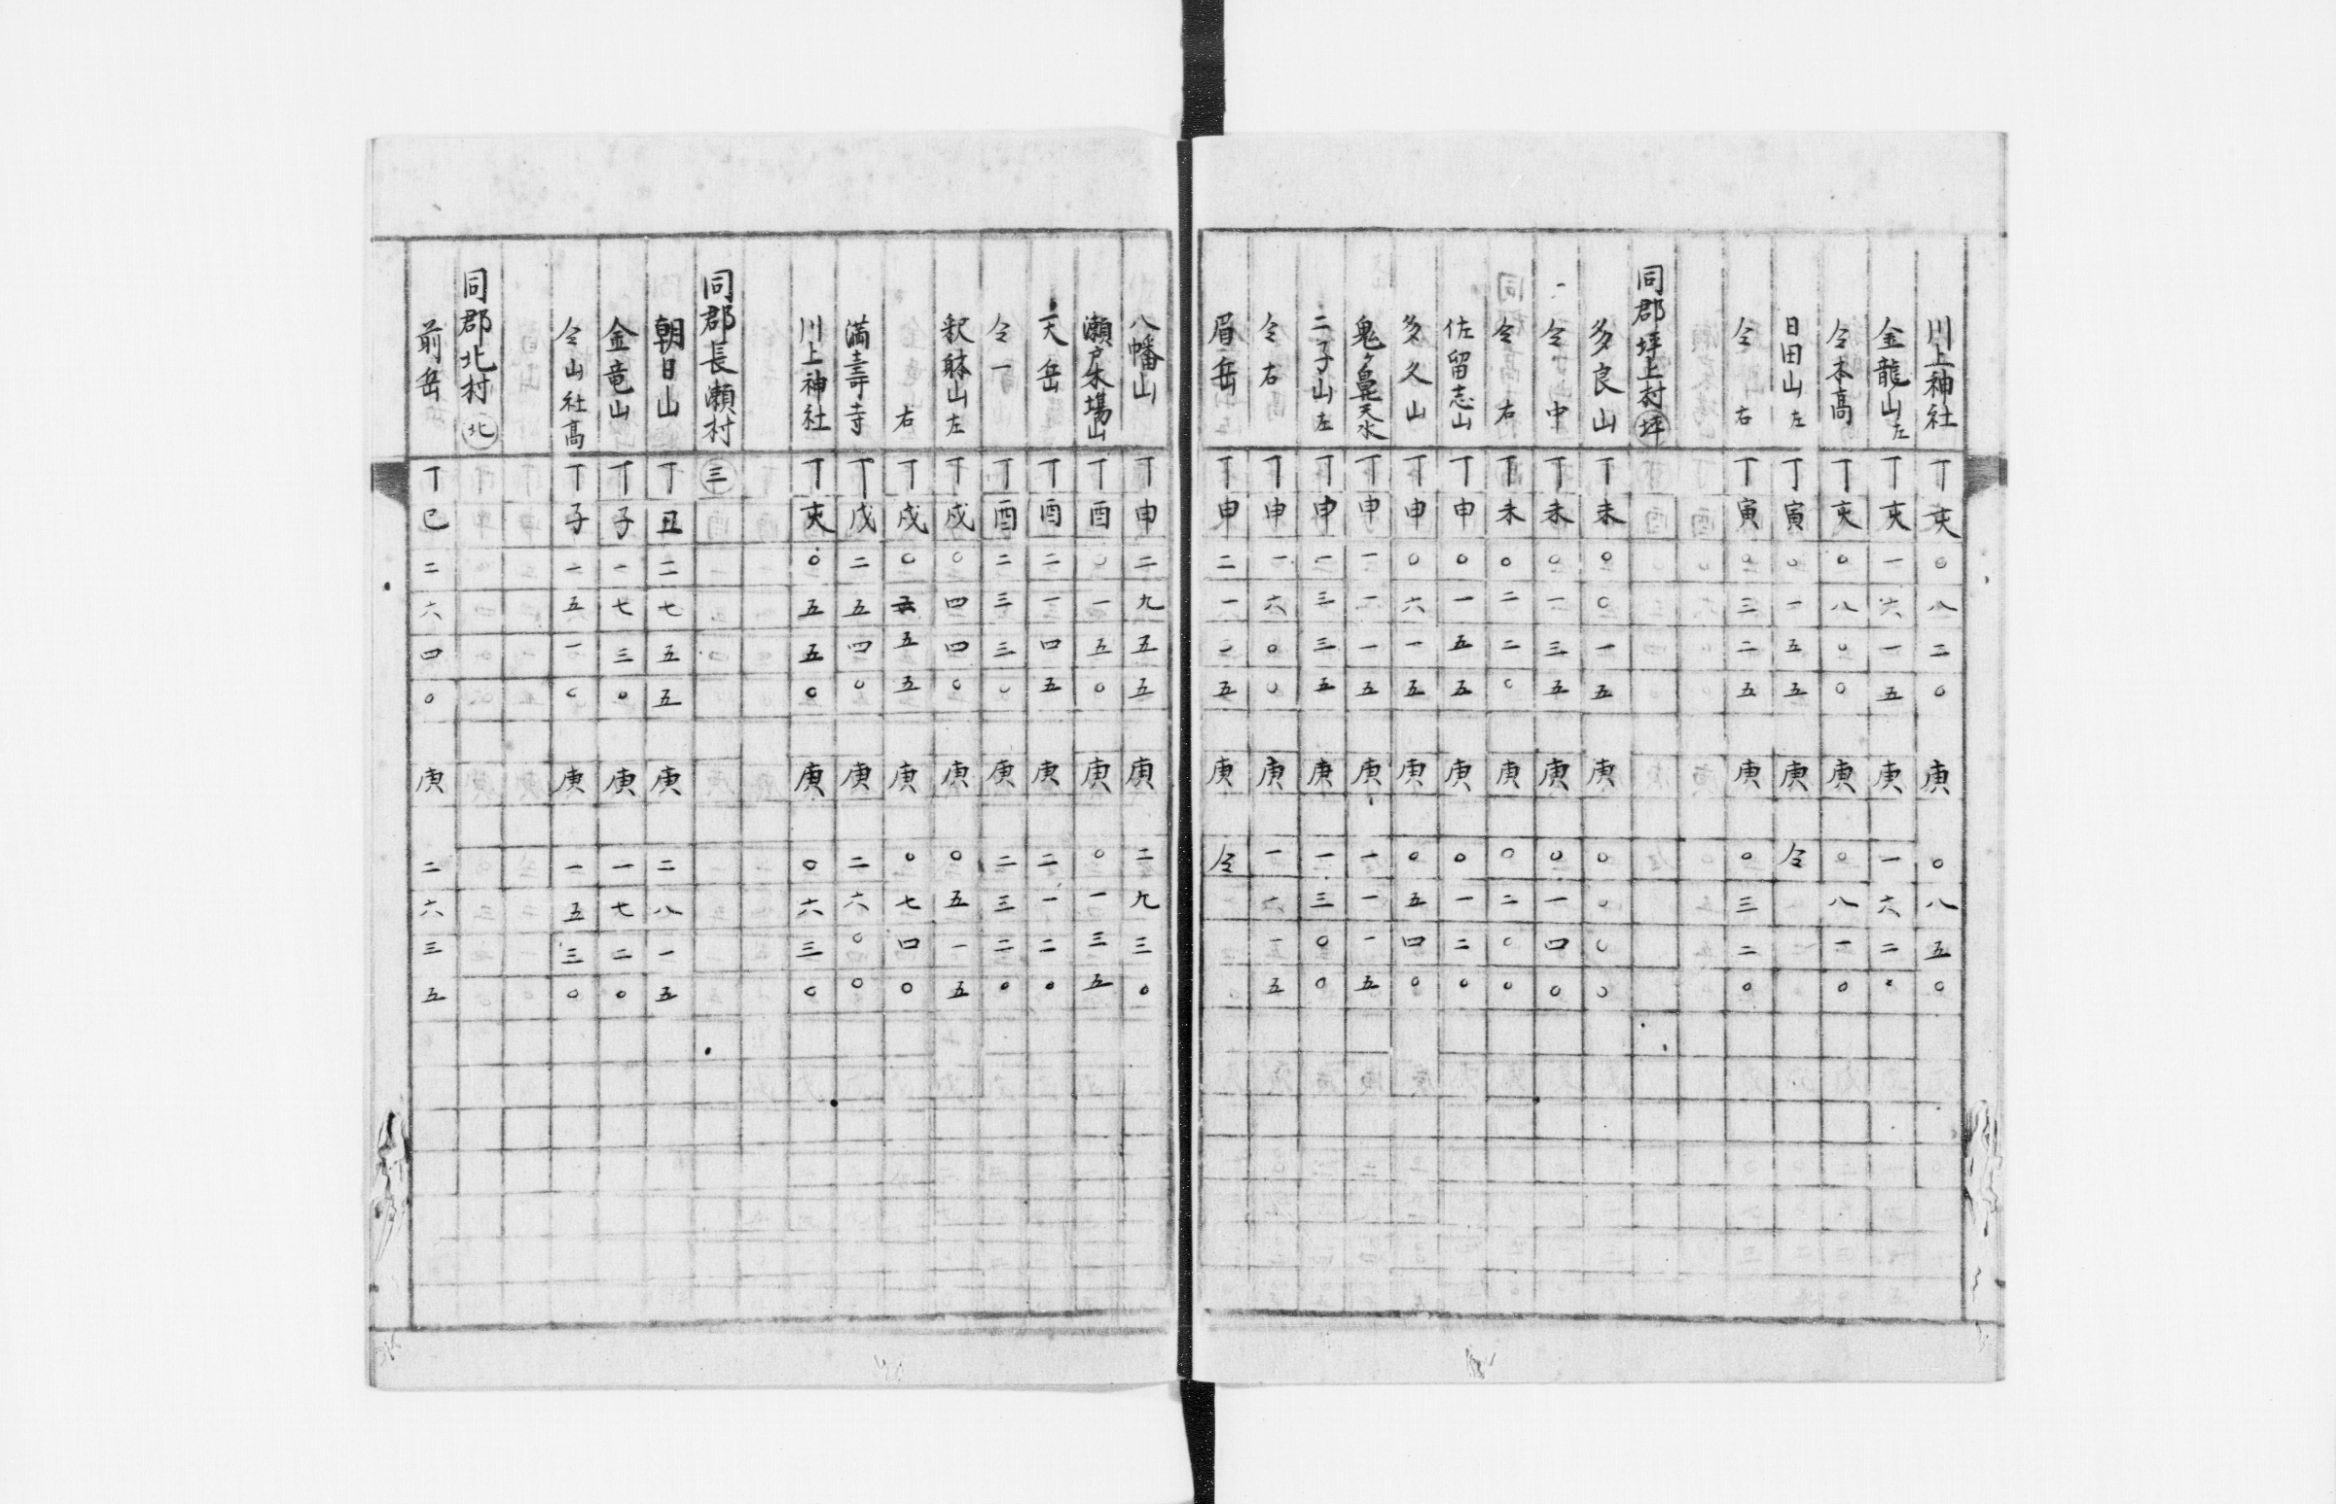 川上神社 丁亥 〇八二〇 庚 〇八五〇
金龍山左 丁亥 一六一五 庚 一六二〇
仝本高 丁亥 〇八〇〇 庚 〇八一〇
日田山左 丁寅 〇一五五 庚 仝
仝右 丁寅 〇三二五 庚 〇三二〇
同郡坪上村 坪
多良山 丁未 〇〇一五 庚 〇〇〇〇
仝中 丁未 〇一三五 庚 〇一四〇
仝右 丁未 〇二二〇 庚 〇二〇〇
佐留志山 丁申 〇一五五 庚 〇一二〇
多久山 丁申 〇六一五 庚 〇五四〇
鬼ヶ鼻天水 丁申 一一一五 庚 一一一五
二子山左 丁申 一三三五 庚 一三〇〇
仝右 丁申 一六〇〇 庚 一六一五
眉岳 丁申 二一〇五 庚 仝
八幡山 丁申 二九五五 庚 二九三〇
瀬戸木場山 丁酉 〇一五〇 庚 〇一三五
天岳 丁酉 二一四五 庚 二一二〇
仝一 丁酉 二三三〇 庚 二三二〇
釈躰山左 丁戌 〇四四〇 庚 〇五一五
右 丁戌 〇五五 庚 〇七四〇
満壽寺 丁戌 二五四〇 庚 二六〇〇
川上神社 丁亥 〇五五〇 庚 〇六三〇
同郡長瀬村 三
朝日山 丁丑 二七五五 庚 二八一五
金竜山 丁子 一七三〇 庚 一七二〇
仝山社高 丁子 一五一〇 庚 一五三〇
同郡北村 北
前岳 丁巳 二六四〇 庚 二六三五